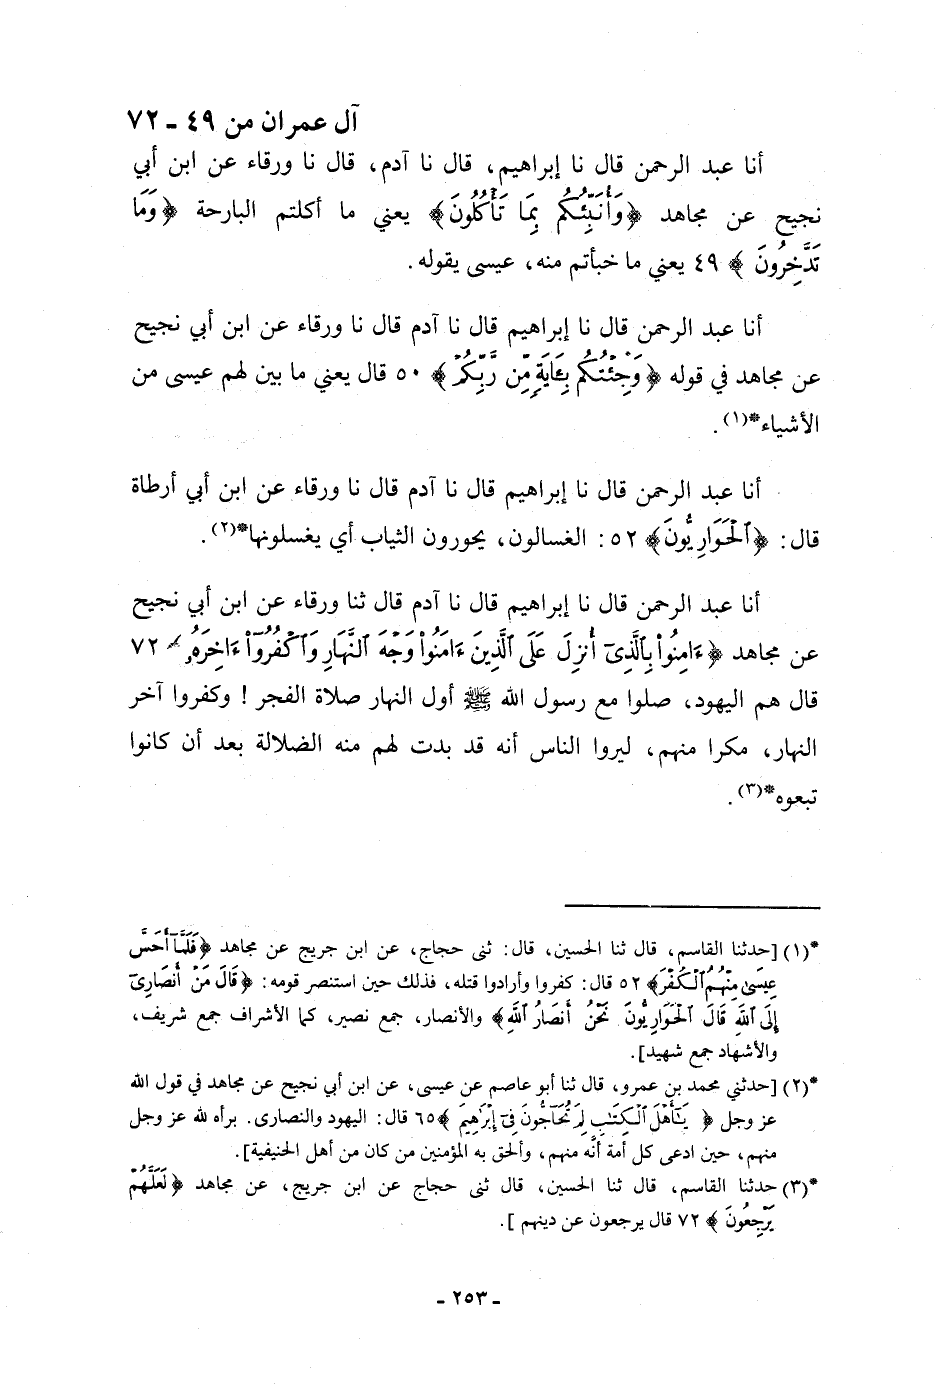 آل عمران من ٤٩ ـ ٧٢
أنا عبد الرحمن قال نا إبراهيم، قال نا آدم، قال نا ورقاء عن ابن أبي
نجيح عن مجاهد ﴿وَأُنَبِّئُكُم بِمَا تَأْكُلُونَ﴾ يعني ما أكلتم البارحة ﴿وَمَا
تَدَّخِرُونَ ﴾ ٤٩ يعني ما خبأتم منه، عيسى يقوله.
أنا عبد الرحمن قال نا إبراهيم قال نا آدم قال نا ورقاء عن ابن أبي نجيح
عن مجاهد في قوله ﴿وَجِئْتُكُم بِـَٔايَةٍ مِّن رَّبِّكُمْ﴾ ٥٠ قال يعني ما بين لهم عيسى من
الأشياء*(١).
أنا عبد الرحمن قال نا إبراهيم قال نا آدم قال نا ورقاء عن ابن أبي أرطاة
قال: ﴿ٱلْحَوَارِيُّونَ﴾ ٥٢: الغسالون، يحورون الثياب أي يغسلونها*(٢).
أنا عبد الرحمن قال نا إبراهيم قال نا آدم قال ثنا ورقاء عن ابن أبي نجيح
عن مجاهد ﴿ءَامِنُوا۟ بِٱلَّذِىٓ أُنزِلَ عَلَى ٱلَّذِينَ ءَامَنُوا۟ وَجْهَ ٱلنَّهَارِ وَٱكْفُرُوٓا۟ ءَاخِرَهُۥ﴾ ٧٢
قال هم اليهود، صلوا مع رسول الله ﷺ أول النهار صلاة الفجر ! وكفروا آخر
النهار، مكرا منهم، ليروا الناس أنه قد بدت لهم منه الضلالة بعد أن كانوا
تبعوه*(٣).
*(١) [حدثنا القاسم، قال ثنا الحسين، قال: ثنى حجاج، عن ابن جريج عن مجاهد ﴿فَلَمَّآ أَحَسَّ
عِيسَىٰ مِنْهُمُ ٱلْكُفْرَ﴾ ٥٢ قال: كفروا وأرادوا قتله، فذلك حين استنصر قومه: ﴿قَالَ مَنْ أَنصَارِىٓ
إِلَى ٱللَّهِ قَالَ ٱلْحَوَارِيُّونَ نَحْنُ أَنصَارُ ٱللَّهِ﴾ والأنصار، جمع نصير، كما الأشراف جمع شريف،
والأشهاد جمع شهيد].
*(٢) [حدثني محمد بن عمرو، قال ثنا أبو عاصم عن عيسى، عن ابن أبي نجيح عن مجاهد في قول الله
عز وجل ﴿ يَـٰٓأَهْلَ ٱلْكِتَـٰبِ لِمَ تُحَآجُّونَ فِىٓ إِبْرَٰهِيمَ ﴾٦٥ قال: اليهود والنصارى. برأه لله عز وجل
منهم، حين ادعى كل أمة أنَّه منهم، وألحق به المؤمنين من كان من أهل الحنيفية].
*(٣) حدثنا القاسم، قال ثنا الحسين، قال ثنى حجاج عن ابن جريج، عن مجاهد ﴿لَعَلَّهُمْ
يَرْجِعُونَ ﴾ ٧٢ قال يرجعون عن دينهم ].
ـ ٢٥٣ ـ